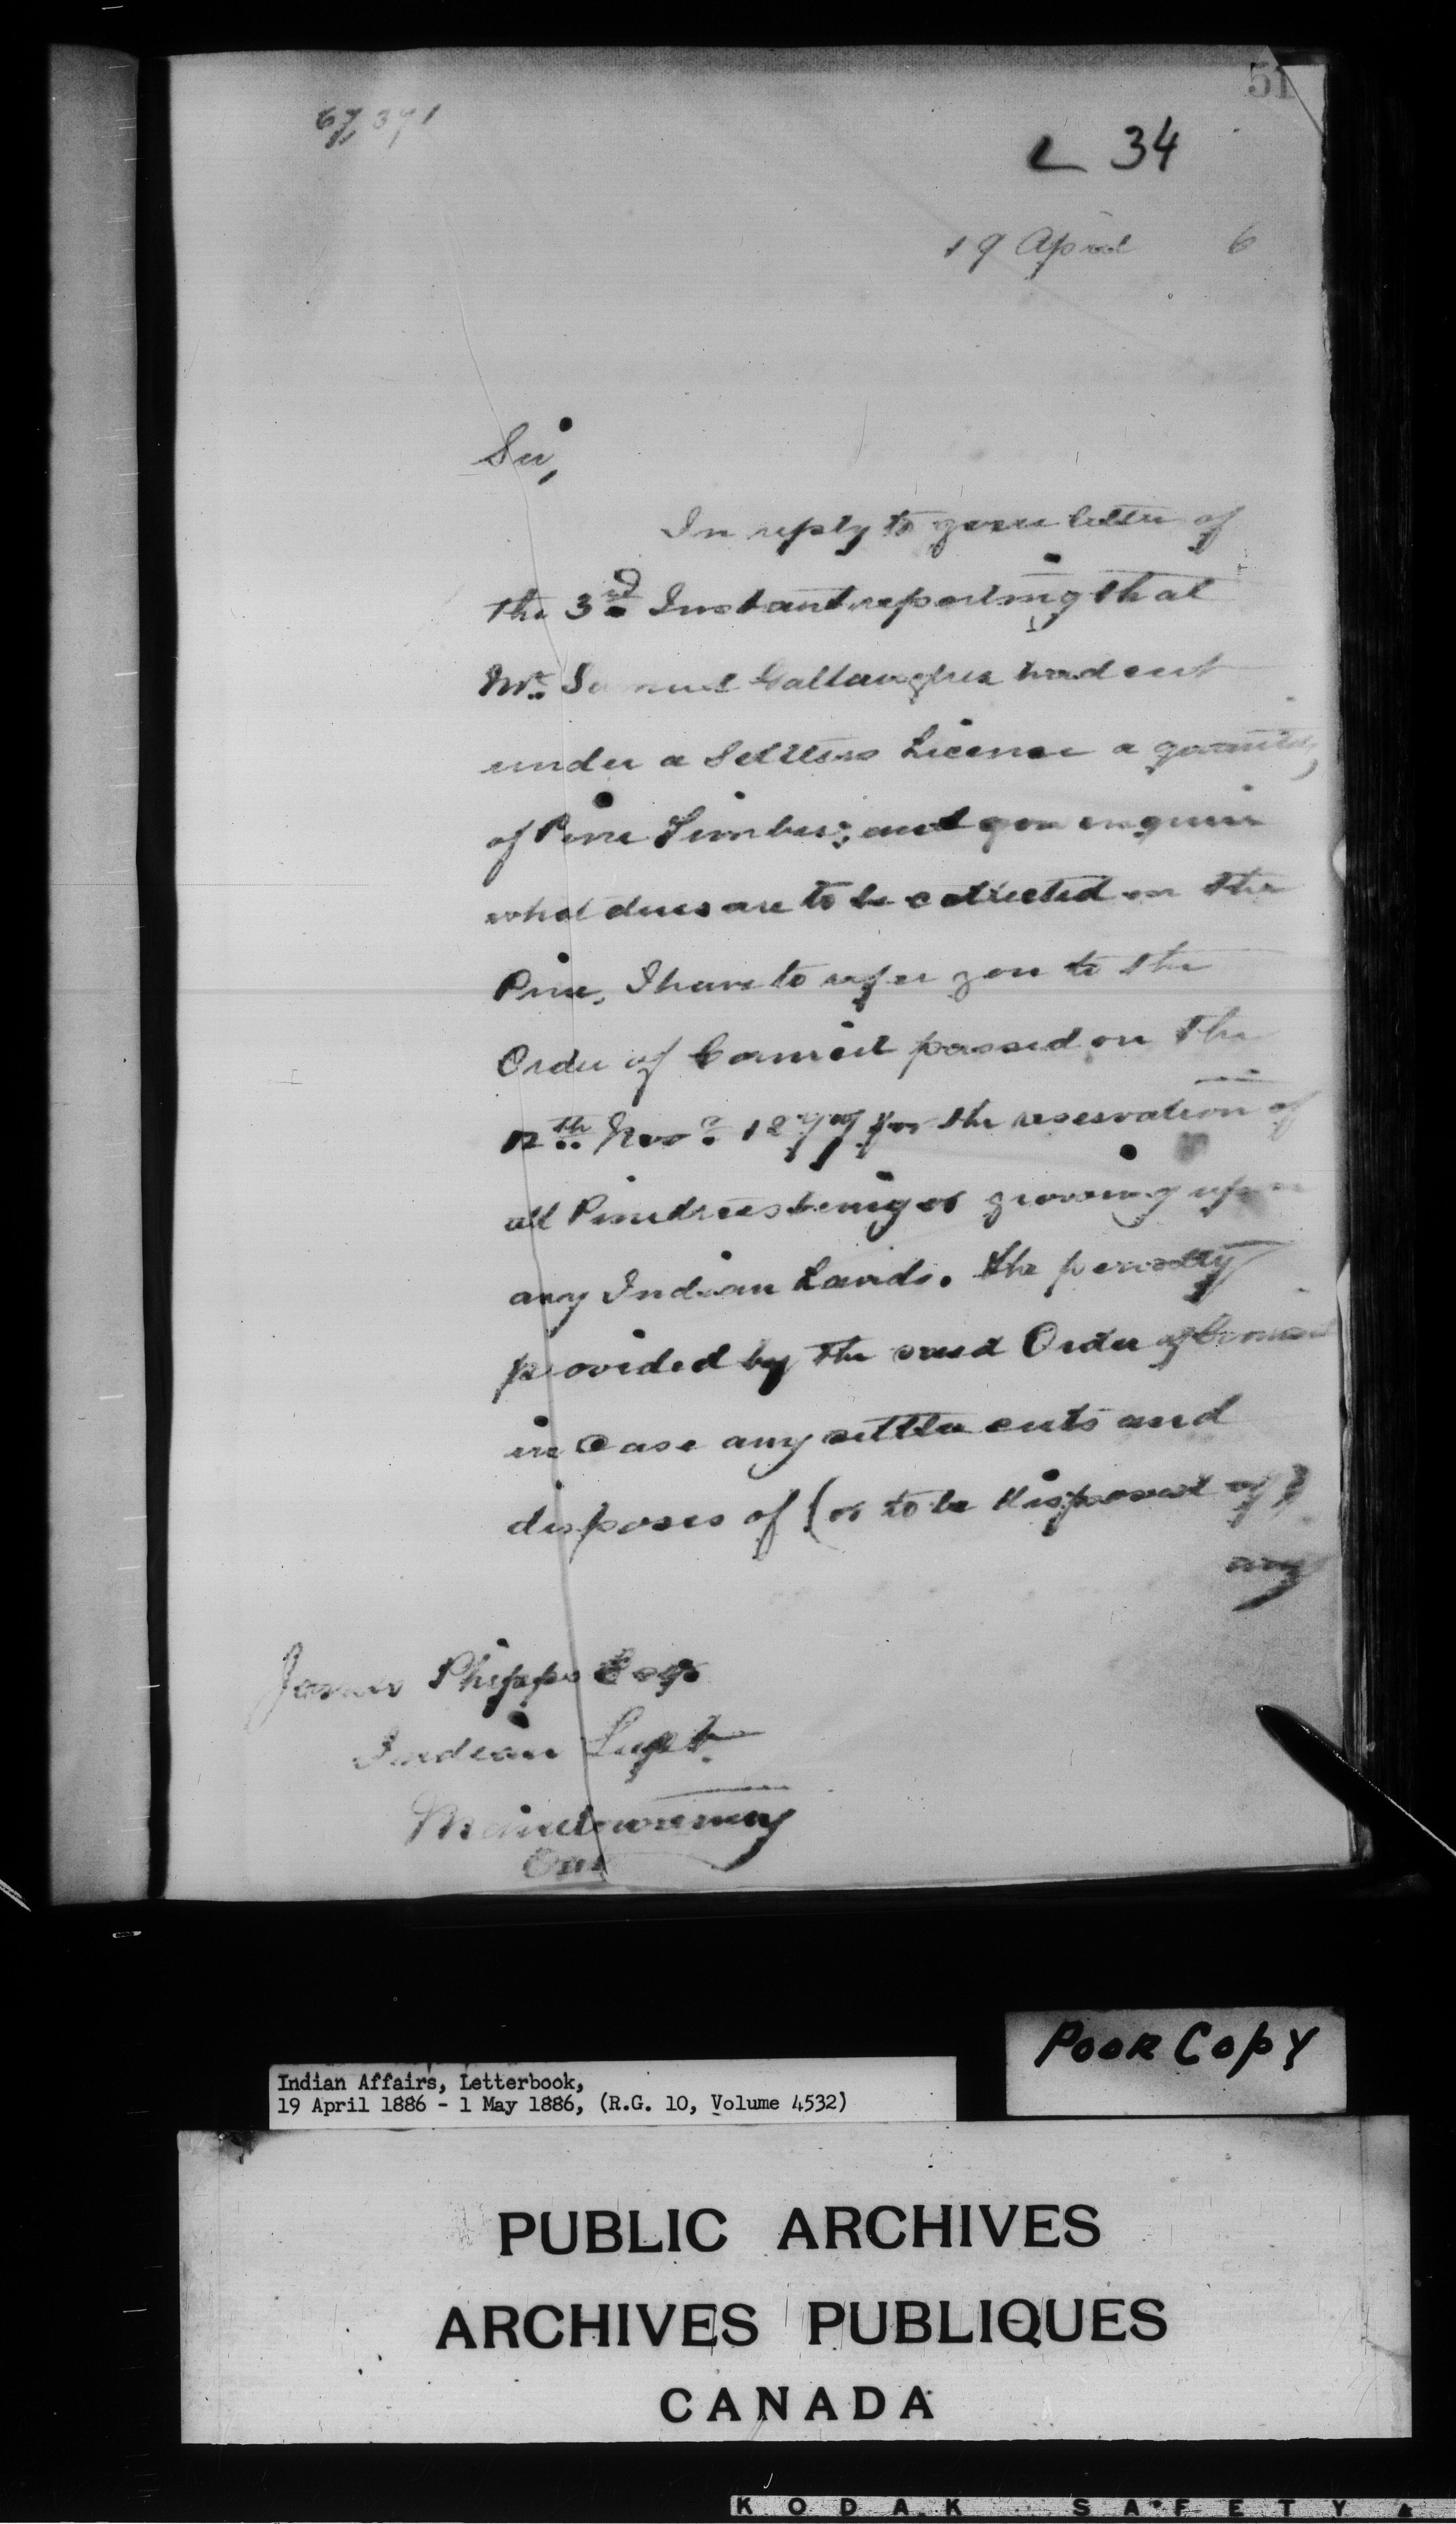 51
67,371
L 34
19 April 6
Sir,
In reply to your letter of
the 3rd Instant reporting that
Mr. Samuel Gallaugher had cut
under a Settlers License a quantity
of Pine Timber; and you enquire
what dues are to be collected on the
Pine, I have to refer you to the
Order of Council passed on the
12th Novr. 1877 for the reservation of
all Pine trees being or growing upon
any Indian Lands. The penalty
provided by the said Order of Council
in Case any settler cuts and
disposes of (or to be disposed of)
any
James Phipps Esqr
Indian Supt.
Manitowaning
Ont
POOR COPY
Indian Affairs, Letterbook,
19 April 1886 - 1 May 1886, (R.G. 10, Volume 4532)
PUBLIC ARCHIVES
ARCHIVES PUBLIQUES
CANADA
KODAK SAFETY